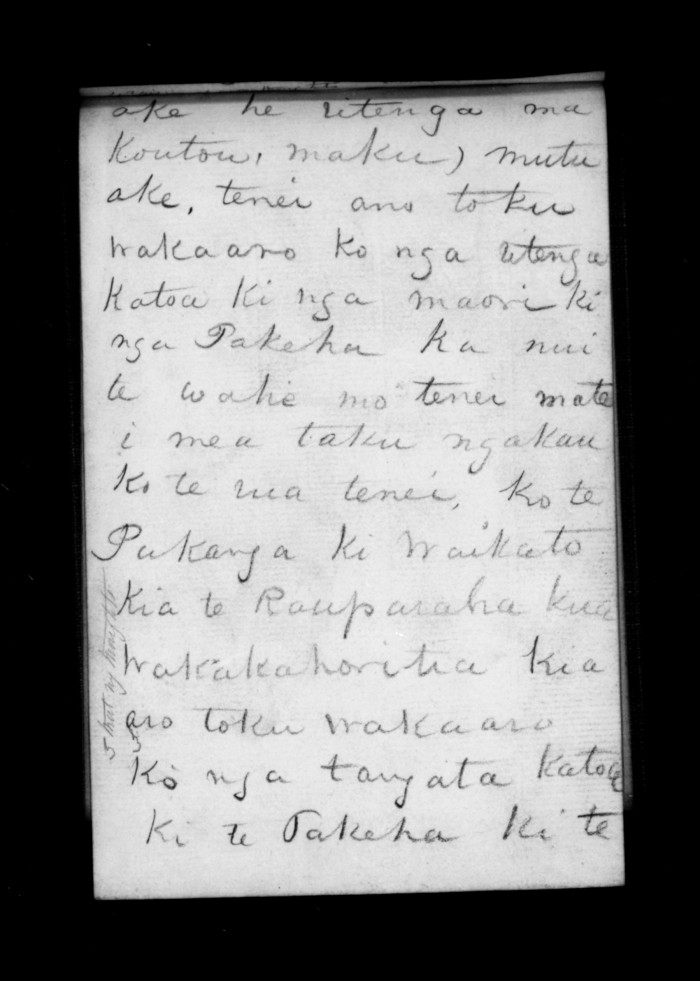 ake he ritenga ma
Koutou, maku) mutu
ake, tenei ano toku
wakaaro ko nga ritenga
Katoa Ki nga maori ki
nga Pakeha Ka nui
te wahi mo tenei mate
i mea taku ngakau
Ko te rua tenei, Ko te
Pakanga Ki Waikato
Kia te Rauparaha kua
Wakakahoritia Kia
aro toku wakaaro
Ko nga tangata Katoa
Ki te Pakeha Ki te